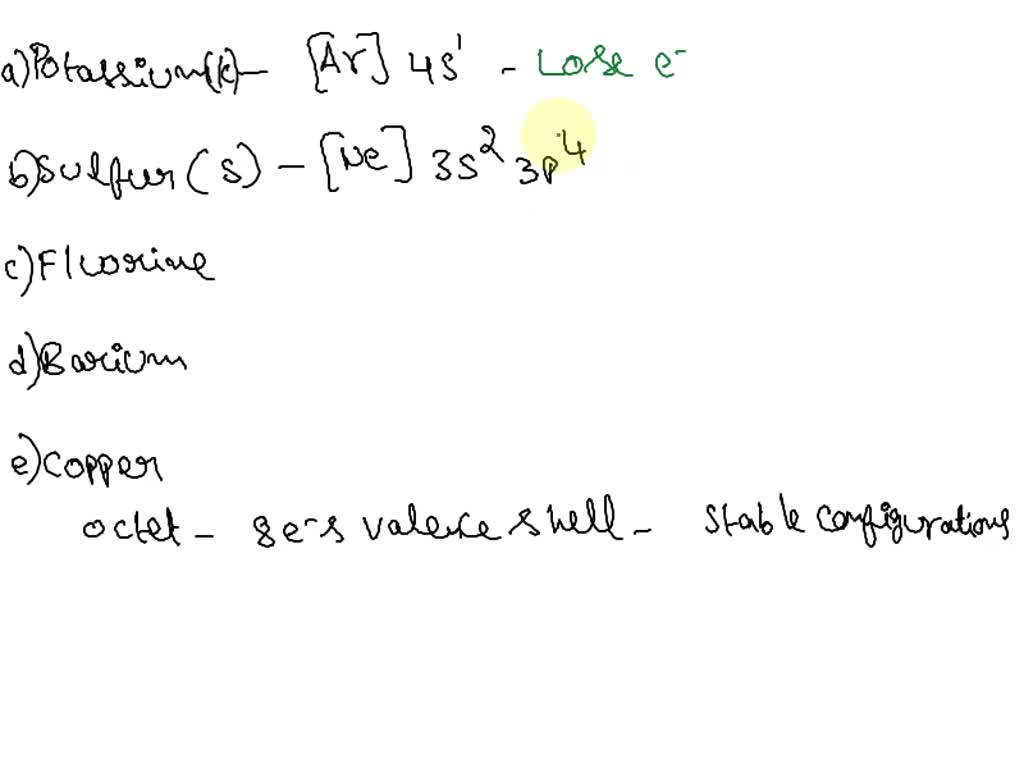 a) Potassium(K) - [Ar] 4s¹ - Lose e⁻
b) Sulfur (S) - [Ne] 3s² 3p⁴
c) Fluorine
d) Barium
e) Copper
octet - 8e⁻s valence shell - stable configurations